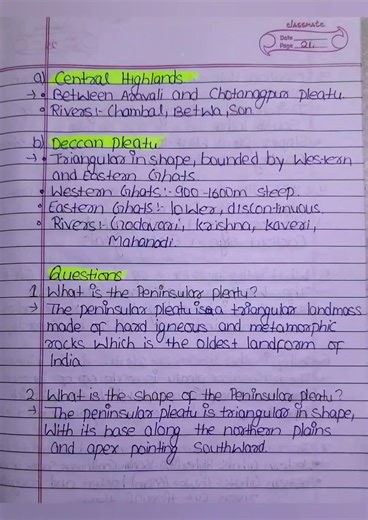 classmate
Date
Page 21.
a) Central Highlands
→ • Between Aravali and Chotanagpur pleatu.
• Rivers:- Chambal, Betwa, Son
b) Deccan pleatu
→ • Triangular in shape, bounded by Western
and Eastern Ghats.
• Western Ghats:- 900-1600m steep.
• Eastern Ghats:- lower, discontinuous.
• Rivers:- Godavari, Krishna, Kaveri,
Mahanadi.
Questions
1 What is the Peninsular pleatu?
→ The peninsular pleatu is a triangular landmass
made of hard igneous and metamorphic
rocks which is the oldest landform of
India
2 What is the shape of the Peninsular pleatu?
→ The peninsular pleatu is triangular in shape,
With its base along the northern plains
and apex pointing southward.